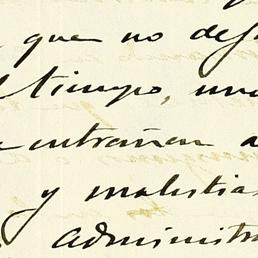 que no de
tiempo, una
entrañen a
y molestia
administra